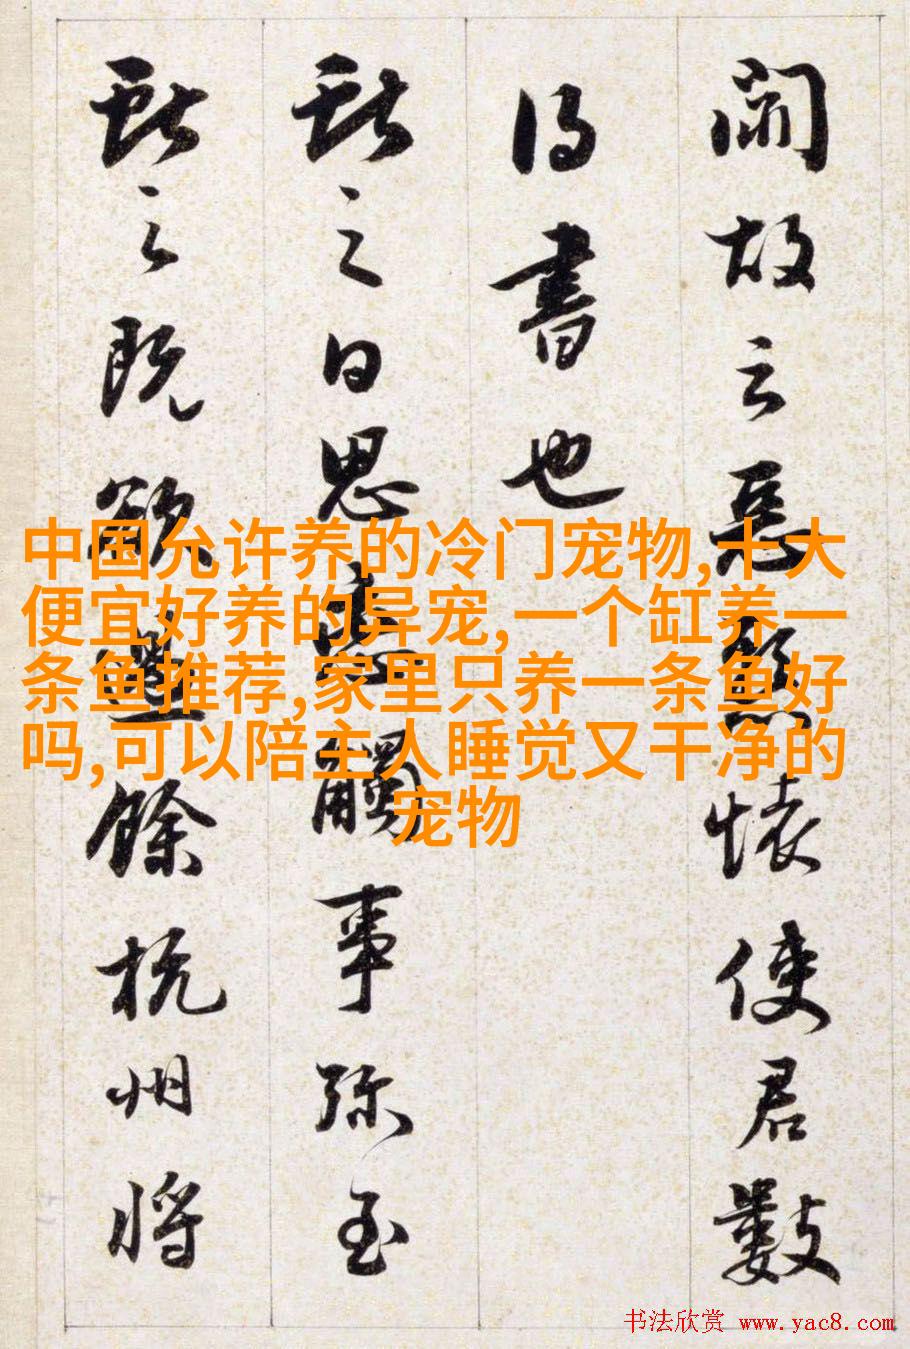 闹故云恶怀使君數
得書也
之日思触事弥至
之既欲餘杭州将
中国允许养的冷门宠物,十大
便宜好养的异宠,一个缸养一
条鱼推荐,家里只养一条鱼好
吗,可以陪主人睡觉又干净的
宠物
书法欣赏 www.yac8.com